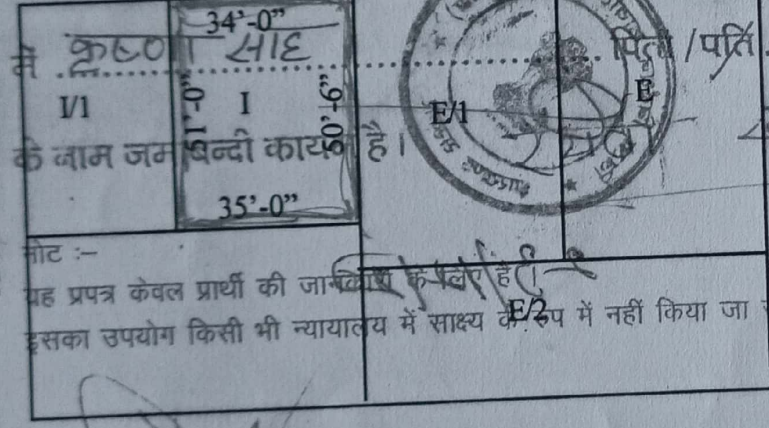 34'-0"
में कृष्णा साह पिता / पति
I/1 I E/1 E
51'-0" 50'-9"
के नाम जमाबन्दी कायम है।
35'-0"
नोट :-
यह प्रपत्र केवल प्रार्थी की जानकारी के लिए है।
E/2
इसका उपयोग किसी भी न्यायालय में साक्ष्य के रूप में नहीं किया जा